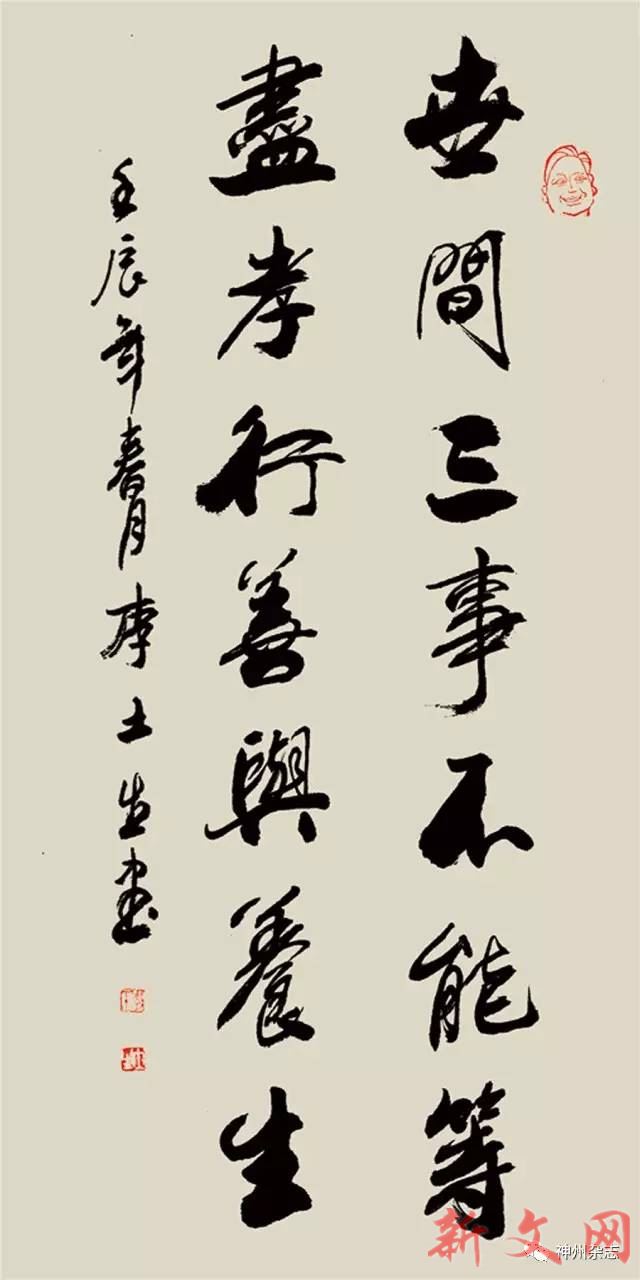 世間三事不能等
盡孝行善與養生
壬辰年春月李土生書
新文网
神州杂志